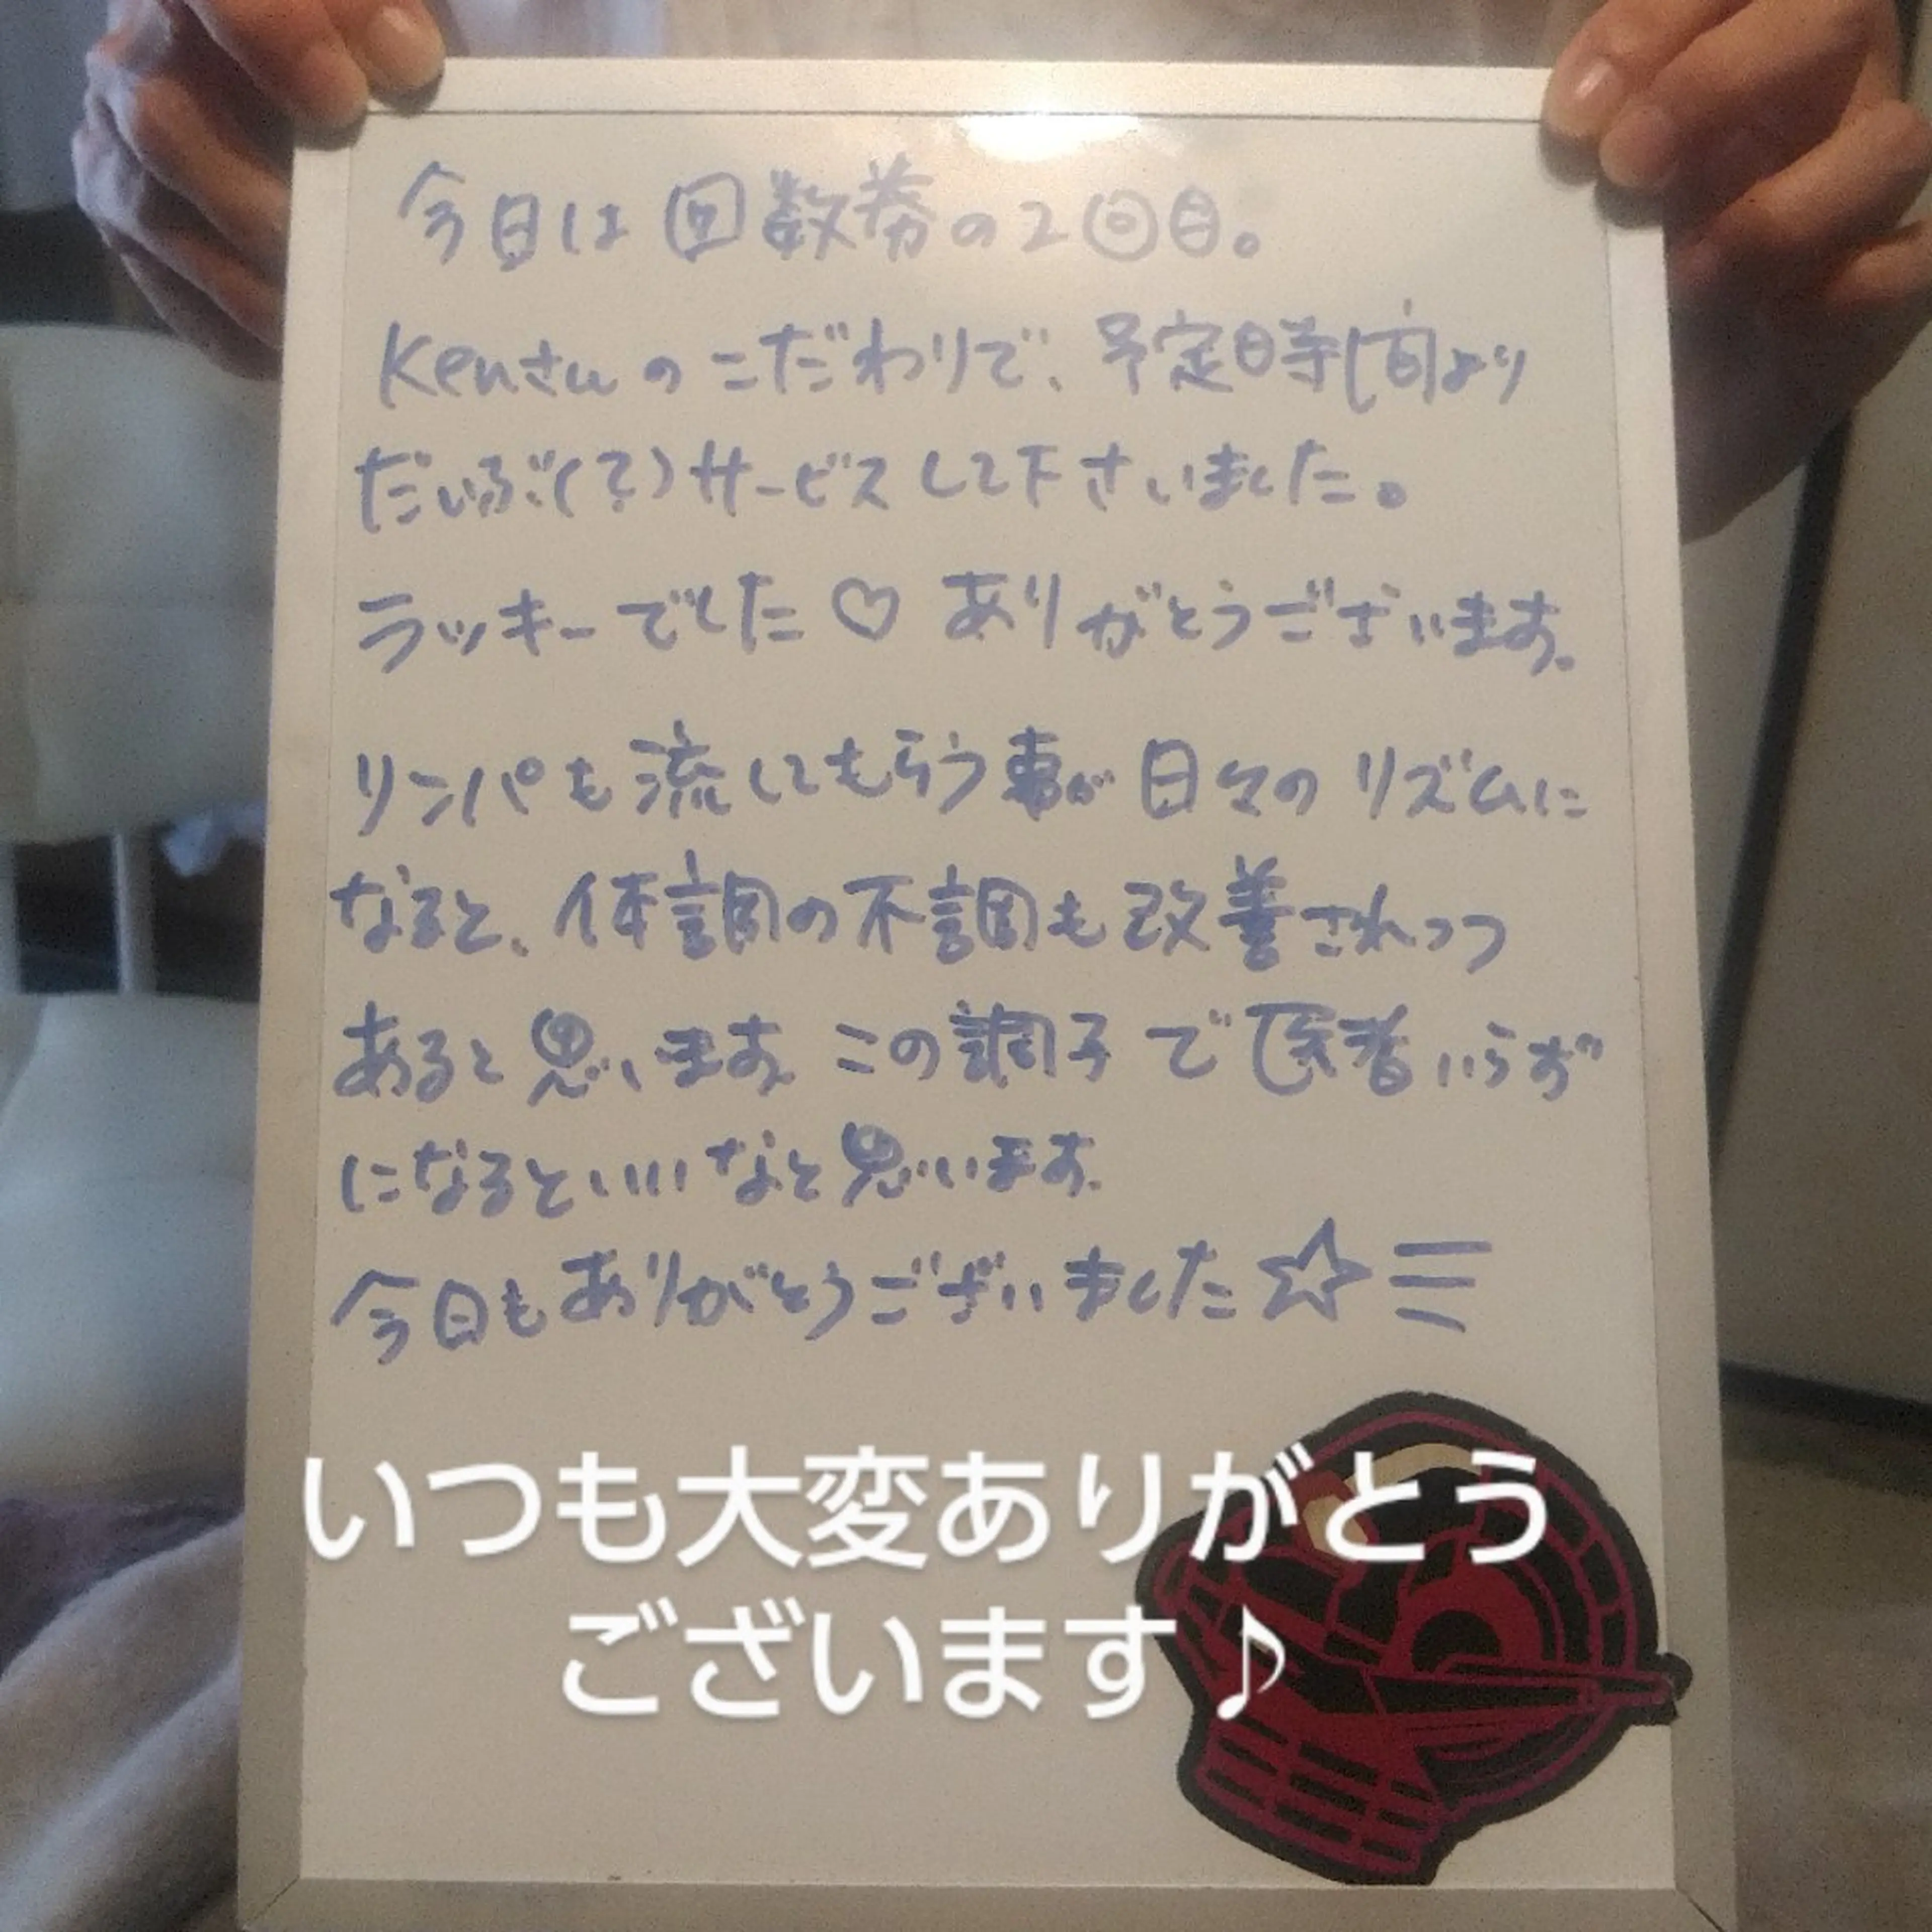 今日は回数券の2回目。
Kenさんのこだわりで、予定時間より
だいぶ(?)サービスして下さいました。
ラッキーでした♡ ありがとうございます。
リンパも流してもらう事が日々のリズムに
なると、体調の不調も改善されつつ
あると思います。この調子で医者いらず
になるといいなと思います。
今日もありがとうございました☆三
いつも大変ありがとう
ございます♪